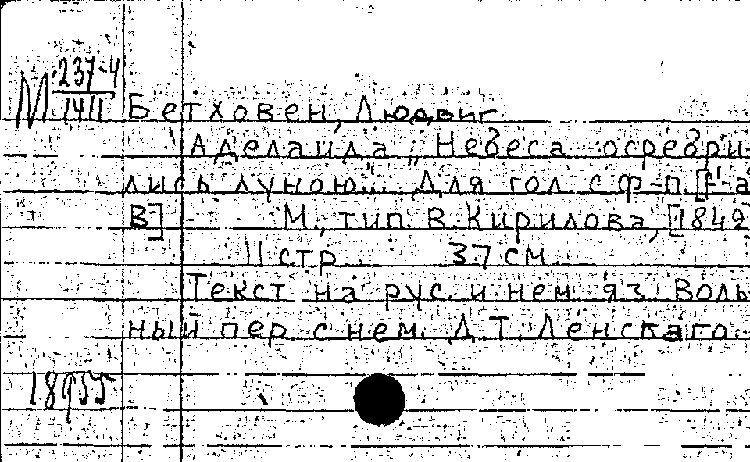 М 237-4
1411
Бетховен, Людвиг
Аделаида „Небеса осребри-
лись луною". Для гол. с ф-п. [f'-a
B]   М., тип. В. Кирилова, [1842
11 стр.   37 см.
Текст на рус. и нем. яз. Воль-
ный пер. с нем. Д. Т. Ленскаго.
18955